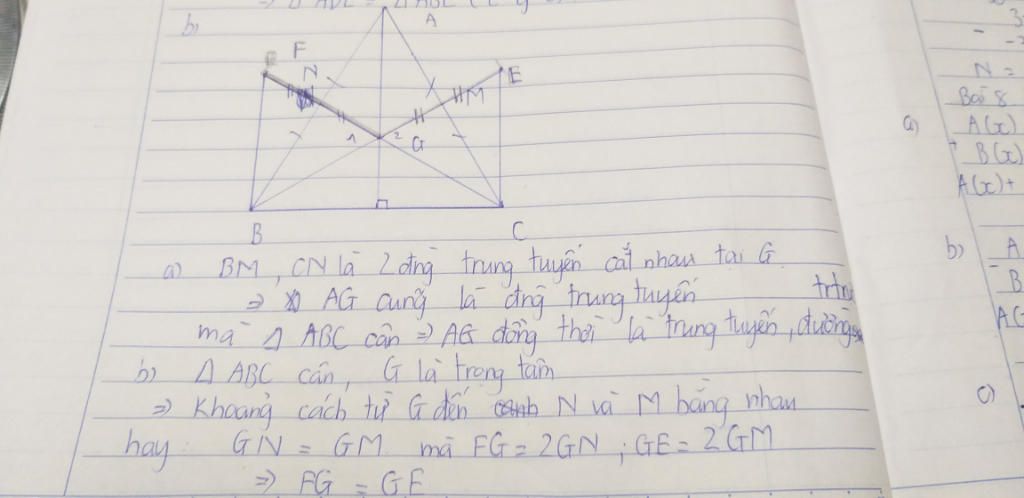 b)
A
F
N
E
M
1
2
G
B
C
a) BM, CN là 2 đng trung tuyến cắt nhau tại G
⇒ AG cũng là đng trung tuyến
mà Δ ABC cân ⇒ AG đồng thời là trung tuyến, đường
b) Δ ABC cân, G là trọng tâm
⇒ Khoảng cách từ G đến N và M bằng nhau
hay: GN = GM mà FG = 2GN ; GE = 2GM
⇒ FG = GE
3
N =
Bài 8
a) A(x)
+ B(x)
A(x)+
b) A
- B
c)